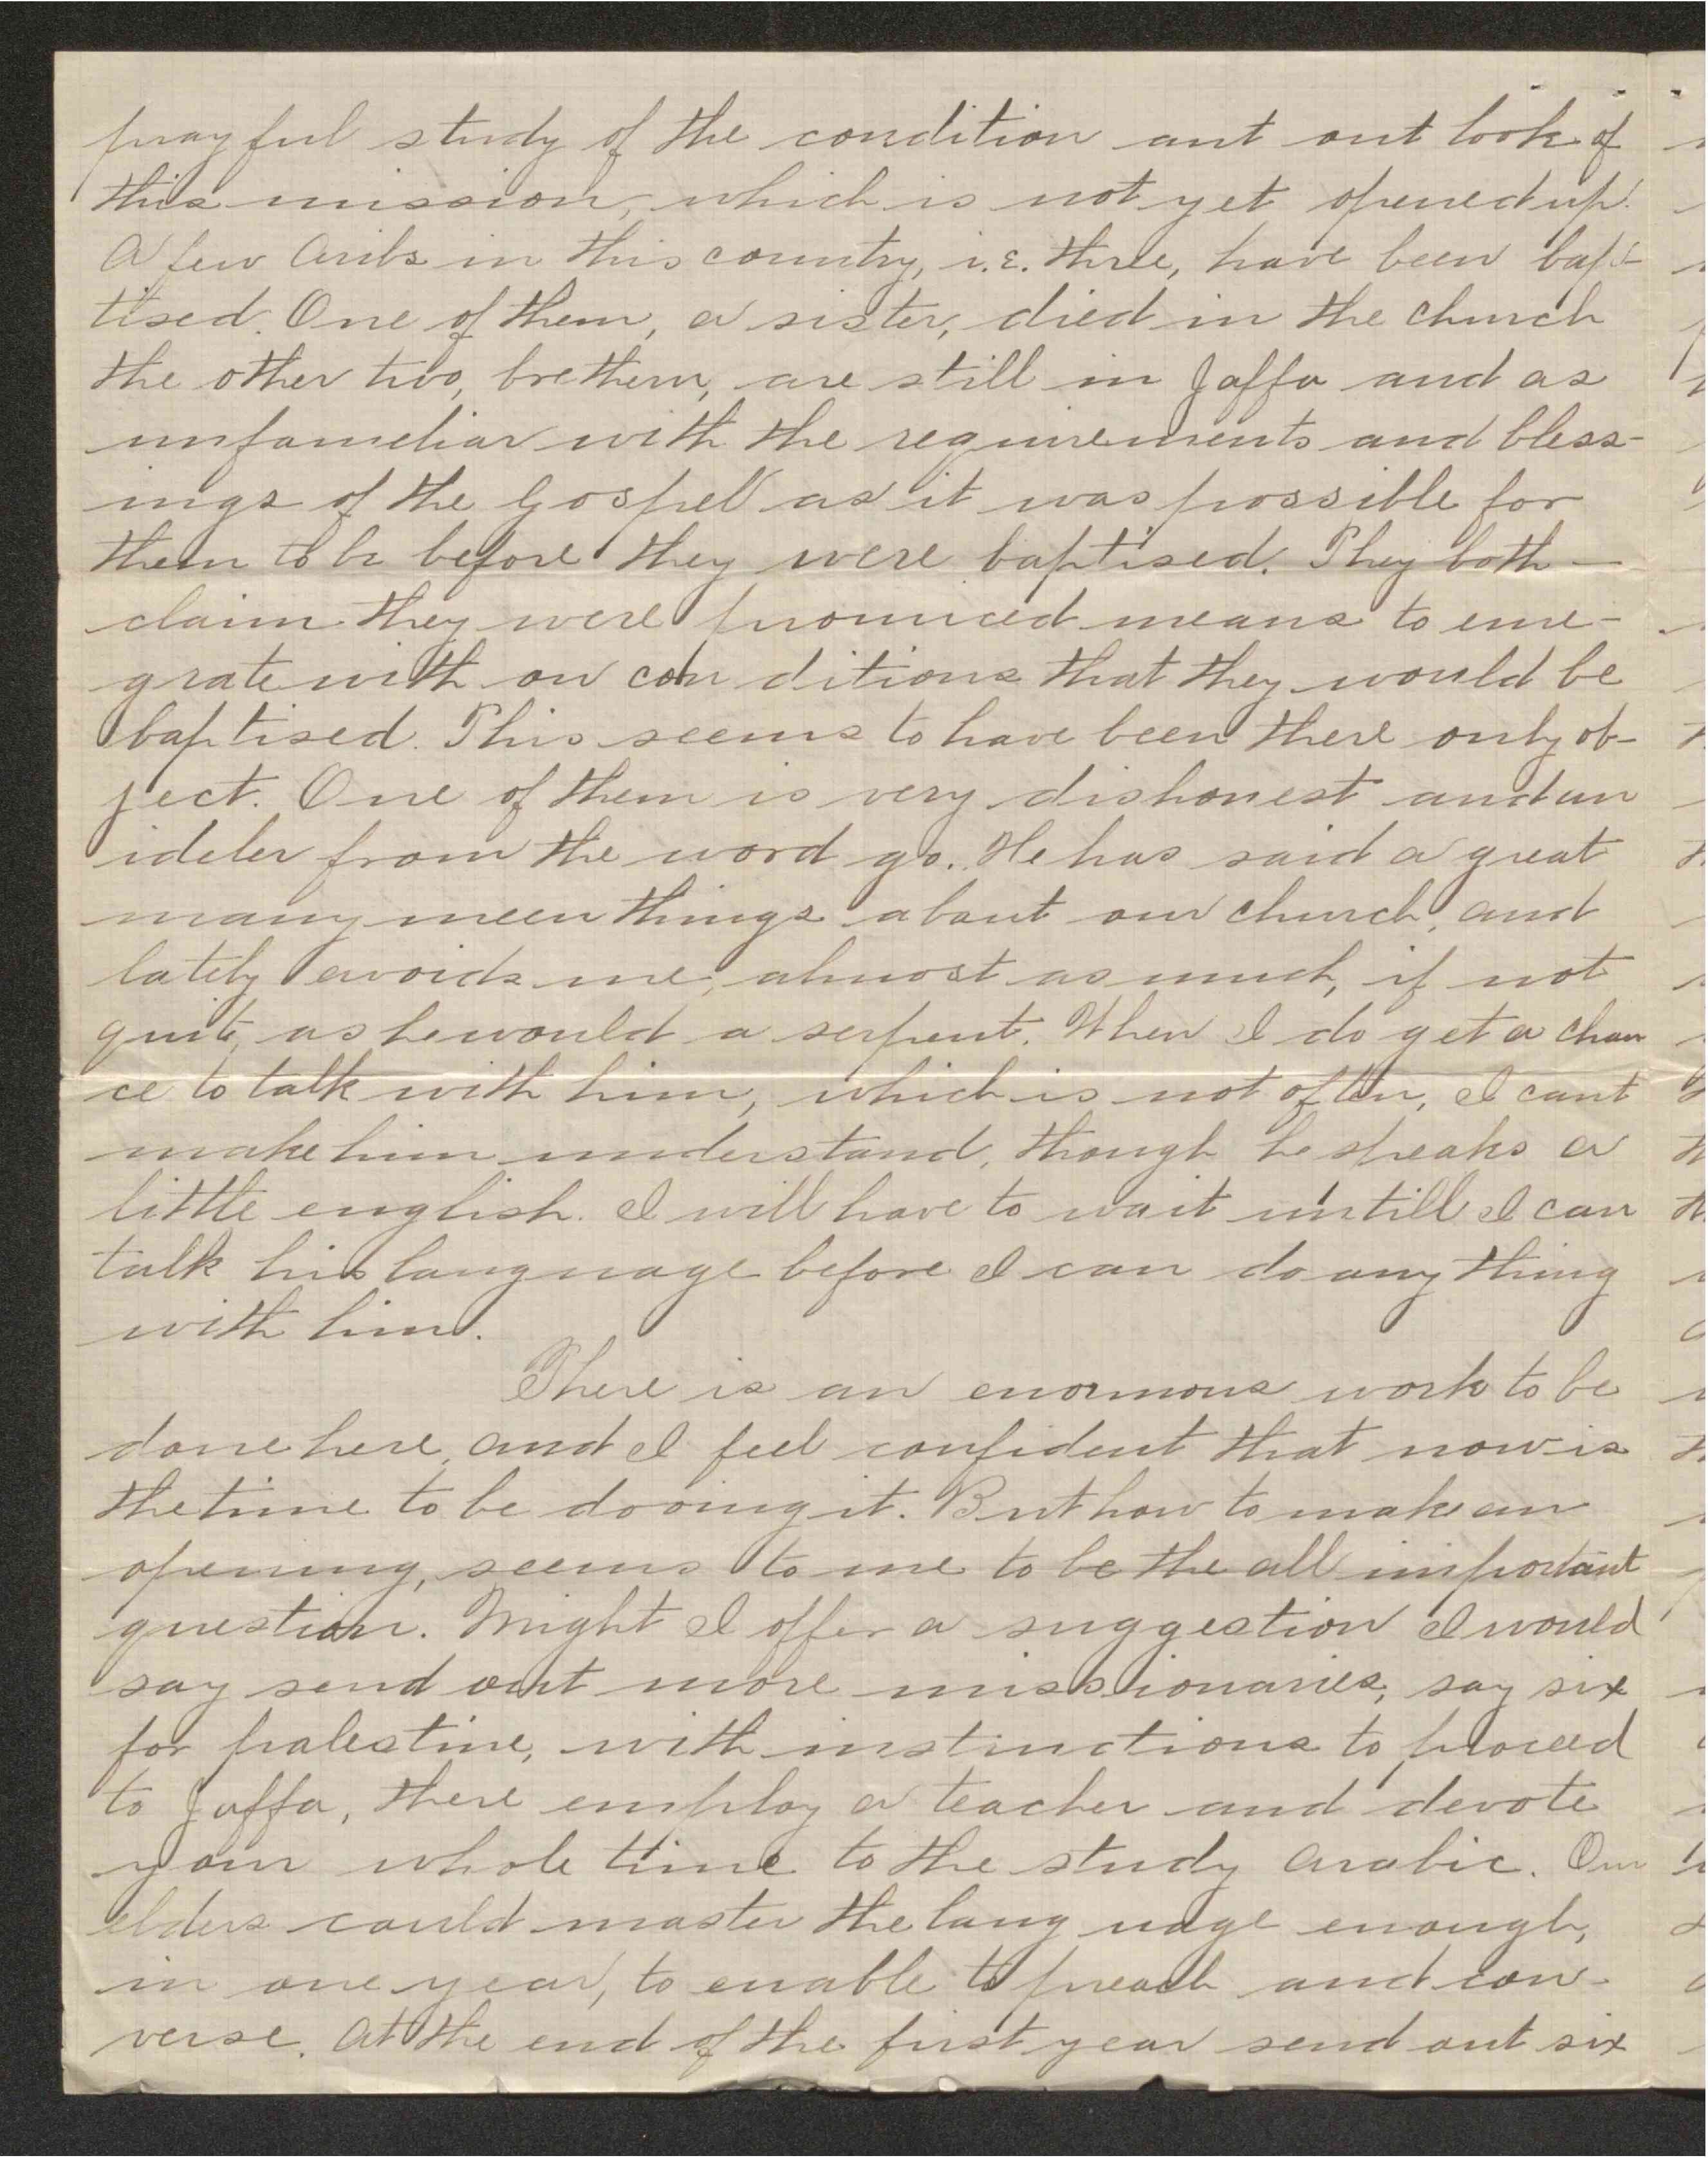 prayful study of the condition ant out look of
this mission, which is not yet opened up.
A few Aribs in this country, i.e. three, have been bap-
tised. One of them, a sister, died in the church
the other two, brethern, are still in Jaffa and as
unfameliar with the requirements and bless-
ings of the Gospel as it was possible for
them to be before they were baptised. They both
claim they were promiced means to eme-
grate with on con ditions that they would be
baptised. This seems to have been there only ob-
ject. One of them is very dishonest and an
ideler from the word go. He has said a great
many meen things about our church, and
lately avoids me, almost as much, if not
quite, as he would a serpent. When I do get a chan
ce to talk with him, which is not often, I cant
make him understand, though he speaks a
little english. I will have to wait untill I can
talk his language before I can do any thing
with him.
There is an enormous work to be
done here, and I feel confident that now is
the time to be dooing it. But how to make an
opening, seems to me to be the all important
question. Might I offer a suggestion I would
say send out more missionaries, say six
for palestine, with instructions to proceed
to Jaffa, there employ a teacher and devote
your whole time to the study Arabic. Our
elders could master the lang uage enough,
in one year, to enable to preach and con-
verse. At the end of the first year send out six